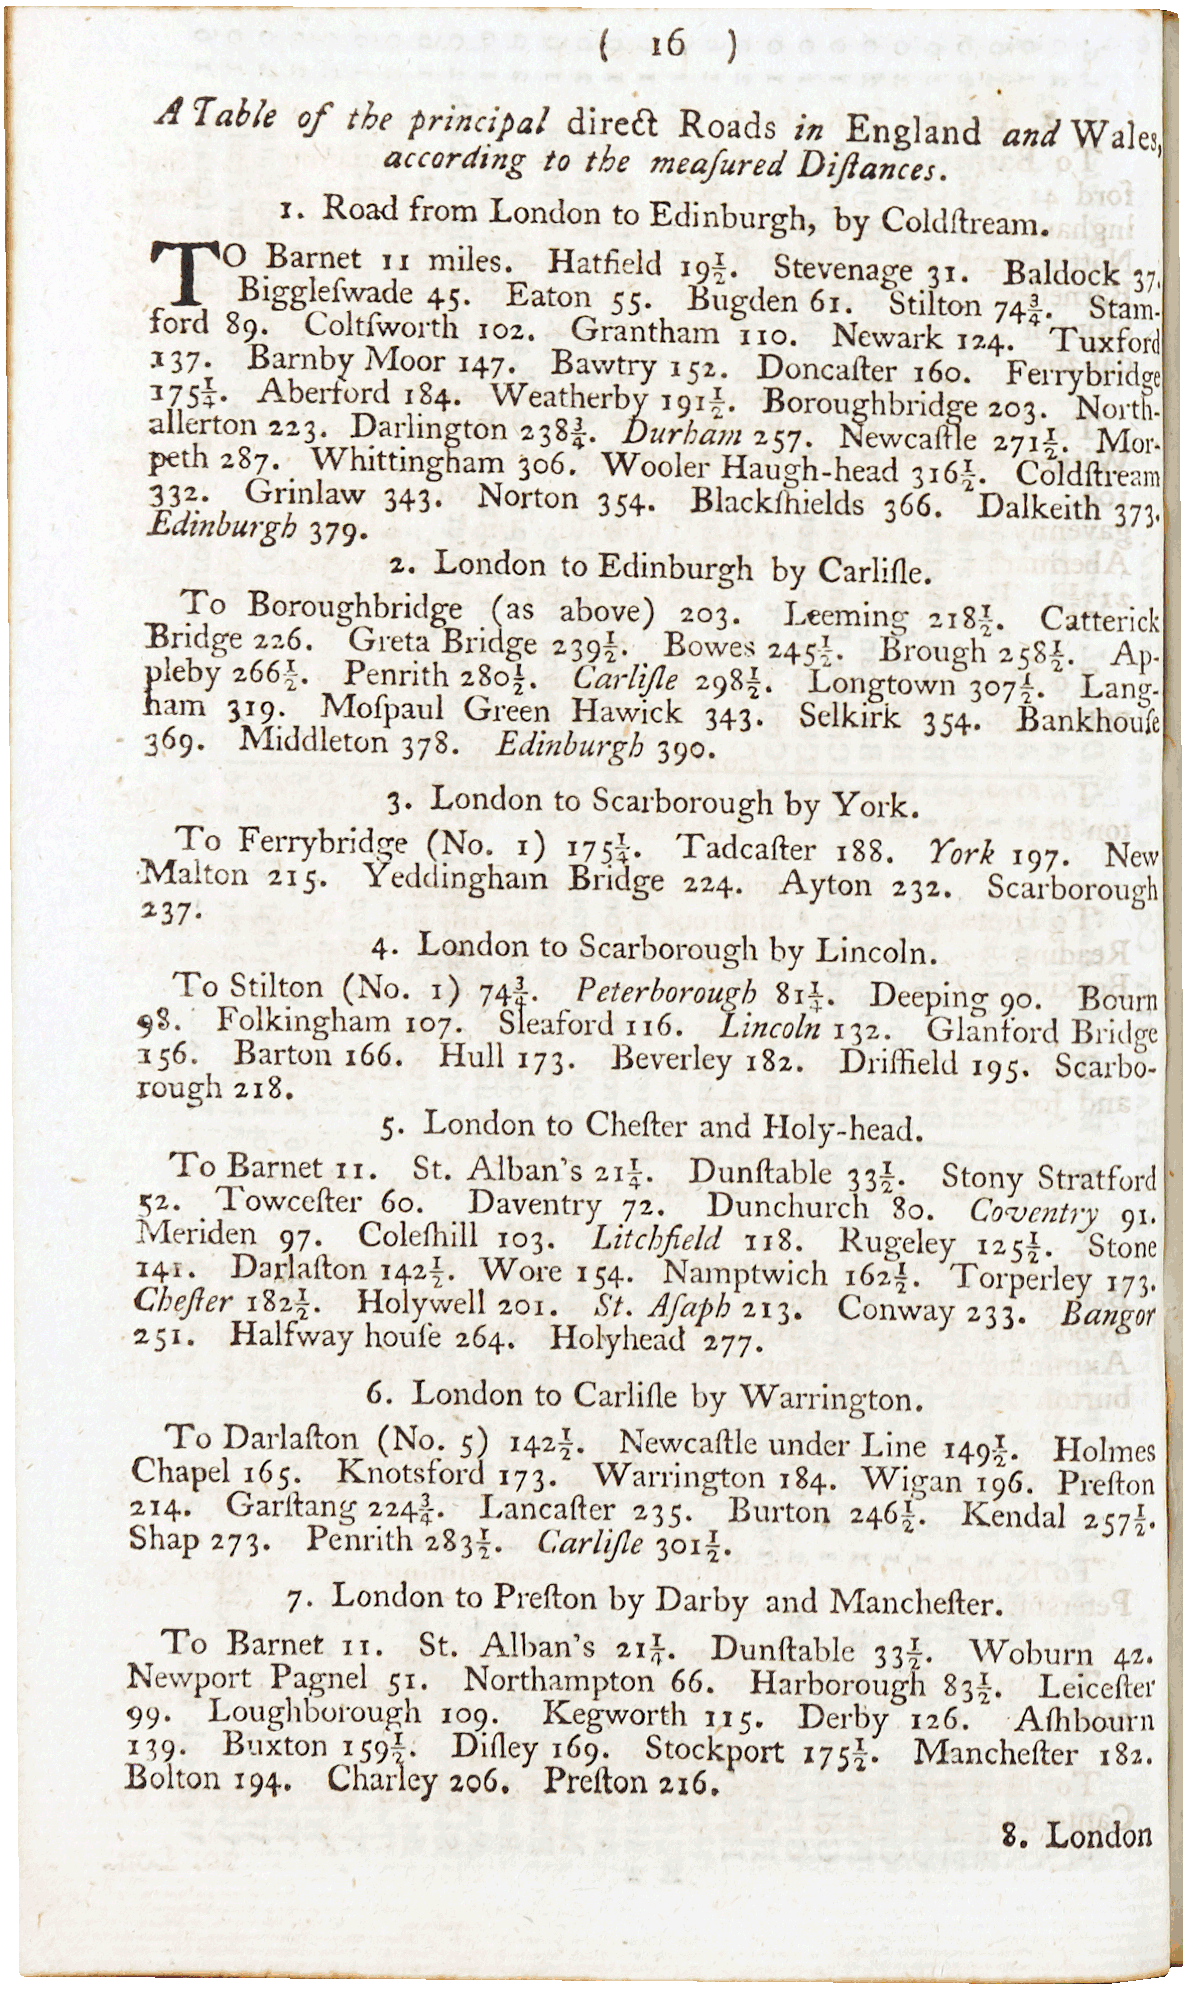 ( 16 )
A Table of the principal direct Roads in England and Wales,
according to the meaſured Diſtances.
1. Road from London to Edinburgh, by Coldſtream.
TO Barnet 11 miles. Hatfield 19½. Stevenage 31. Baldock 37.
Biggleſwade 45. Eaton 55. Bugden 61. Stilton 74¾. Stam-
ford 89. Coltſworth 102. Grantham 110. Newark 124. Tuxford
137. Barnby Moor 147. Bawtry 152. Doncaſter 160. Ferrybridge
175¼. Aberford 184. Weatherby 191½. Boroughbridge 203. North-
allerton 223. Darlington 238¾. Durham 257. Newcaſtle 271½. Mor-
peth 287. Whittingham 306. Wooler Haugh-head 316½. Coldſtream
332. Grinlaw 343. Norton 354. Blackſhields 366. Dalkeith 373.
Edinburgh 379.
2. London to Edinburgh by Carliſle.
To Boroughbridge (as above) 203. Leeming 218½. Catterick
Bridge 226. Greta Bridge 239½. Bowes 245½. Brough 258½. Ap-
pleby 266½. Penrith 280½. Carliſle 298½. Longtown 307½. Lang-
ham 319. Moſpaul Green Hawick 343. Selkirk 354. Bankhouſe
369. Middleton 378. Edinburgh 390.
3. London to Scarborough by York.
To Ferrybridge (No. 1) 175¼. Tadcaſter 188. York 197. New
Malton 215. Yeddingham Bridge 224. Ayton 232. Scarborough
237.
4. London to Scarborough by Lincoln.
To Stilton (No. 1) 74¾. Peterborough 81¼. Deeping 90. Bourn
98. Folkingham 107. Sleaford 116. Lincoln 132. Glanford Bridge
156. Barton 166. Hull 173. Beverley 182. Driffield 195. Scarbo-
rough 218.
5. London to Cheſter and Holy-head.
To Barnet 11. St. Alban's 21¼. Dunſtable 33½. Stony Stratford
52. Towceſter 60. Daventry 72. Dunchurch 80. Coventry 91.
Meriden 97. Coleſhill 103. Litchfield 118. Rugeley 125½. Stone
141. Darlaſton 142½. Wore 154. Namptwich 162½. Torperley 173.
Cheſter 182½. Holywell 201. St. Aſaph 213. Conway 233. Bangor
251. Halfway houſe 264. Holyhead 277.
6. London to Carliſle by Warrington.
To Darlaſton (No. 5) 142½. Newcaſtle under Line 149½. Holmes
Chapel 165. Knotsford 173. Warrington 184. Wigan 196. Preſton
214. Garſtang 224¾. Lancaſter 235. Burton 246½. Kendal 257½.
Shap 273. Penrith 283½. Carliſle 301½.
7. London to Preſton by Darby and Mancheſter.
To Barnet 11. St. Alban's 21¼. Dunſtable 33½. Woburn 42.
Newport Pagnel 51. Northampton 66. Harborough 83½. Leiceſter
99. Loughborough 109. Kegworth 115. Derby 126. Aſhbourn
139. Buxton 159½. Diſley 169. Stockport 175½. Mancheſter 182.
Bolton 194. Charley 206. Preſton 216.
8. London